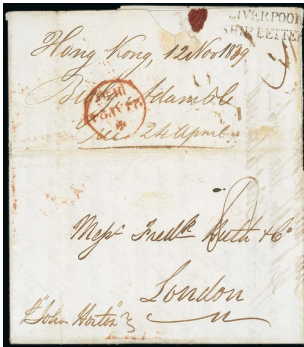 LIVERPOOL
SHIP LETTER
Hong Kong, 12 Nov 1839
Adam & Co
24 April
Messrs Fredk Huth & Co
London
p "John Horton"